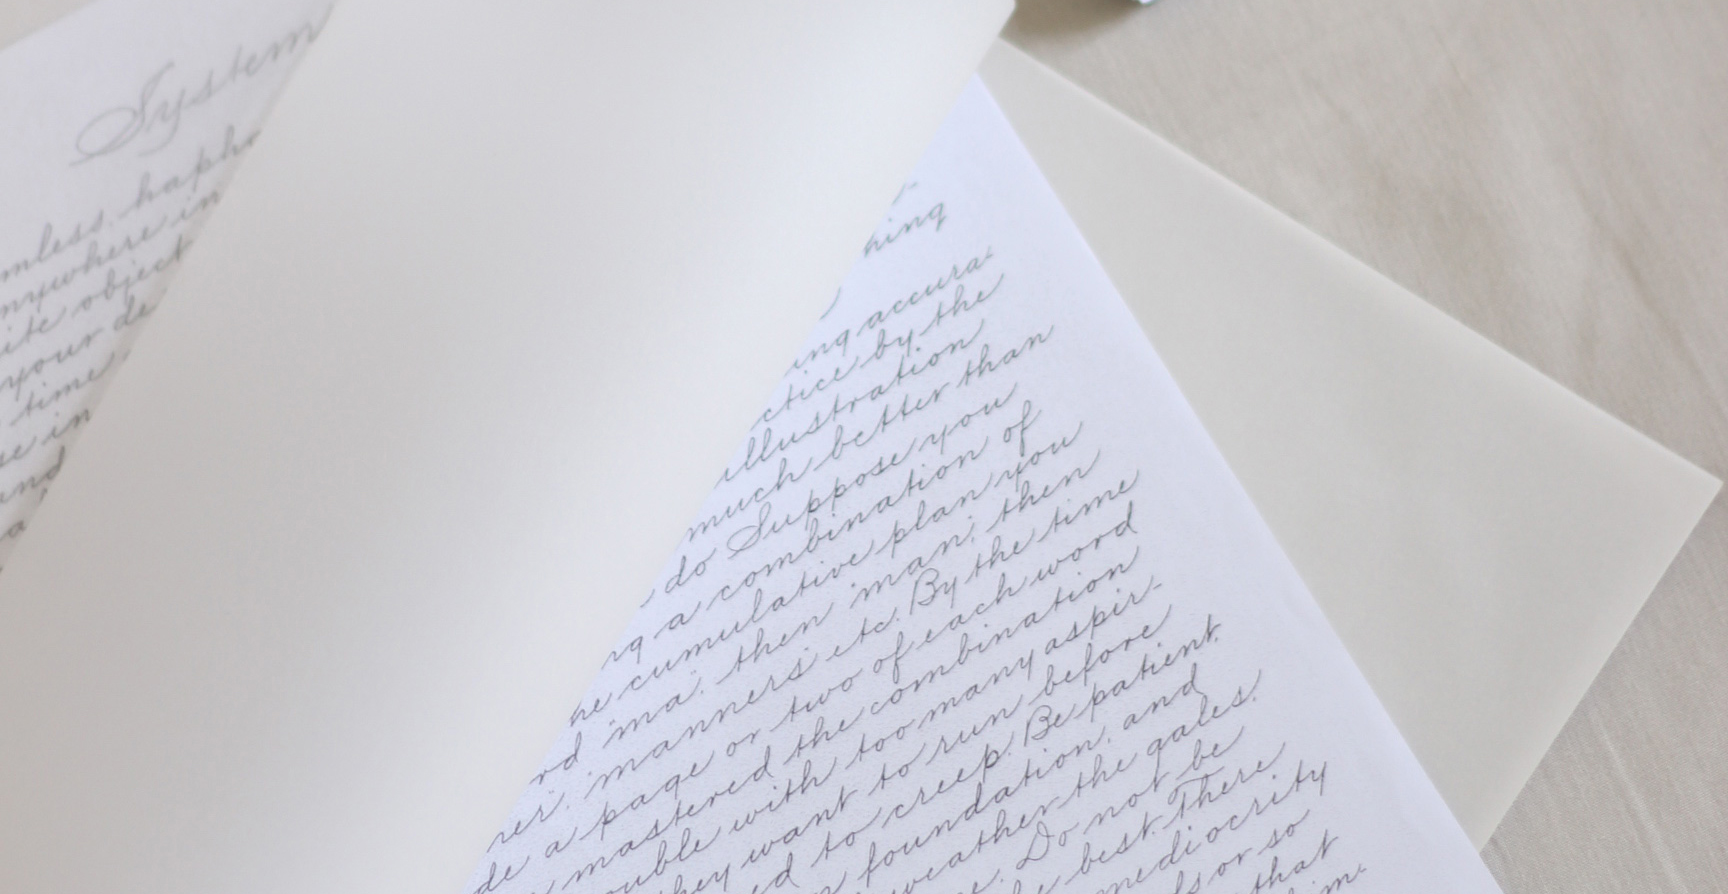 System
mless, hapha
nywhere in
ite object
your de
time.
se in
and
a
hing
ing accura-
ctice by the
illustration
much better than
do Suppose you
ng a combination of
he cumulative plan you
rd 'ma,' then 'man;' then
ner,' 'manners' etc. By the time
de a page or two of each word
mastered the combination
ouble with too many aspir-
hey want to run before
ed to creep. Be patient.
foundation, and
weather the gales.
e. Do not be
he best. There
mediocrity
ds or so
that
him.